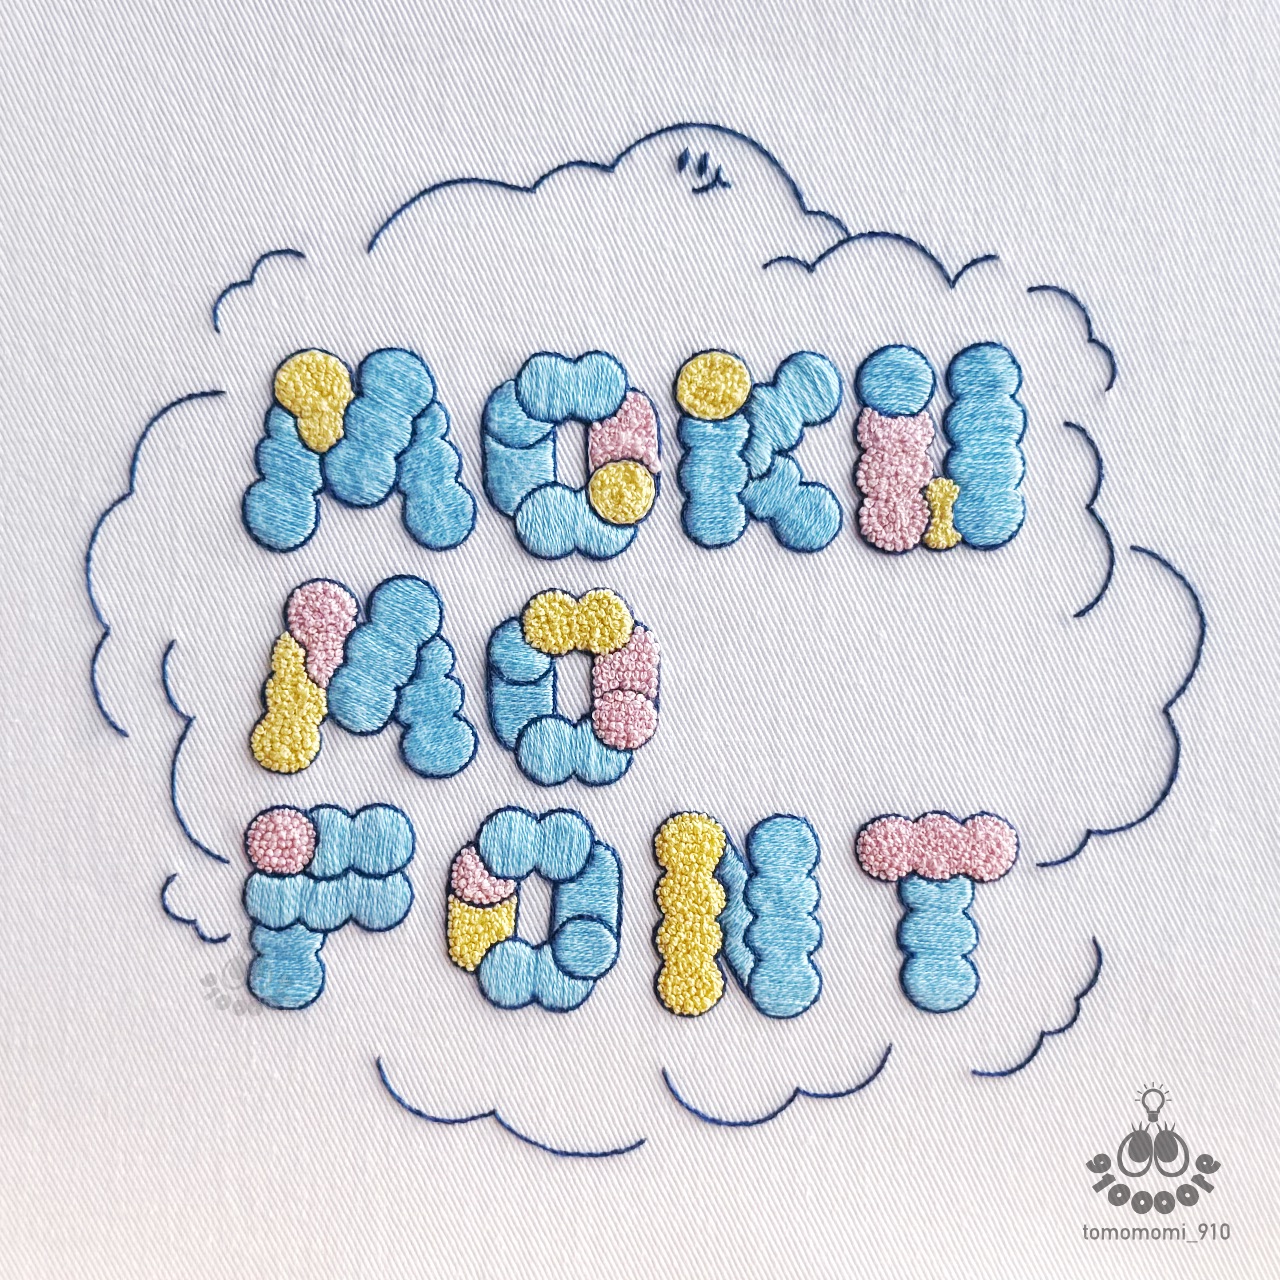 MOKU
MO
FONT
tomomomi_910